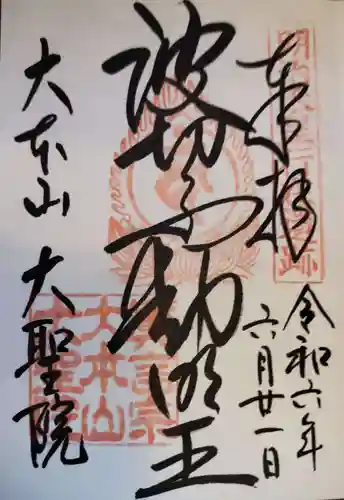 奉拝
令和六年
六月廿一日
波切不動明王
大本山 大聖院
大本山